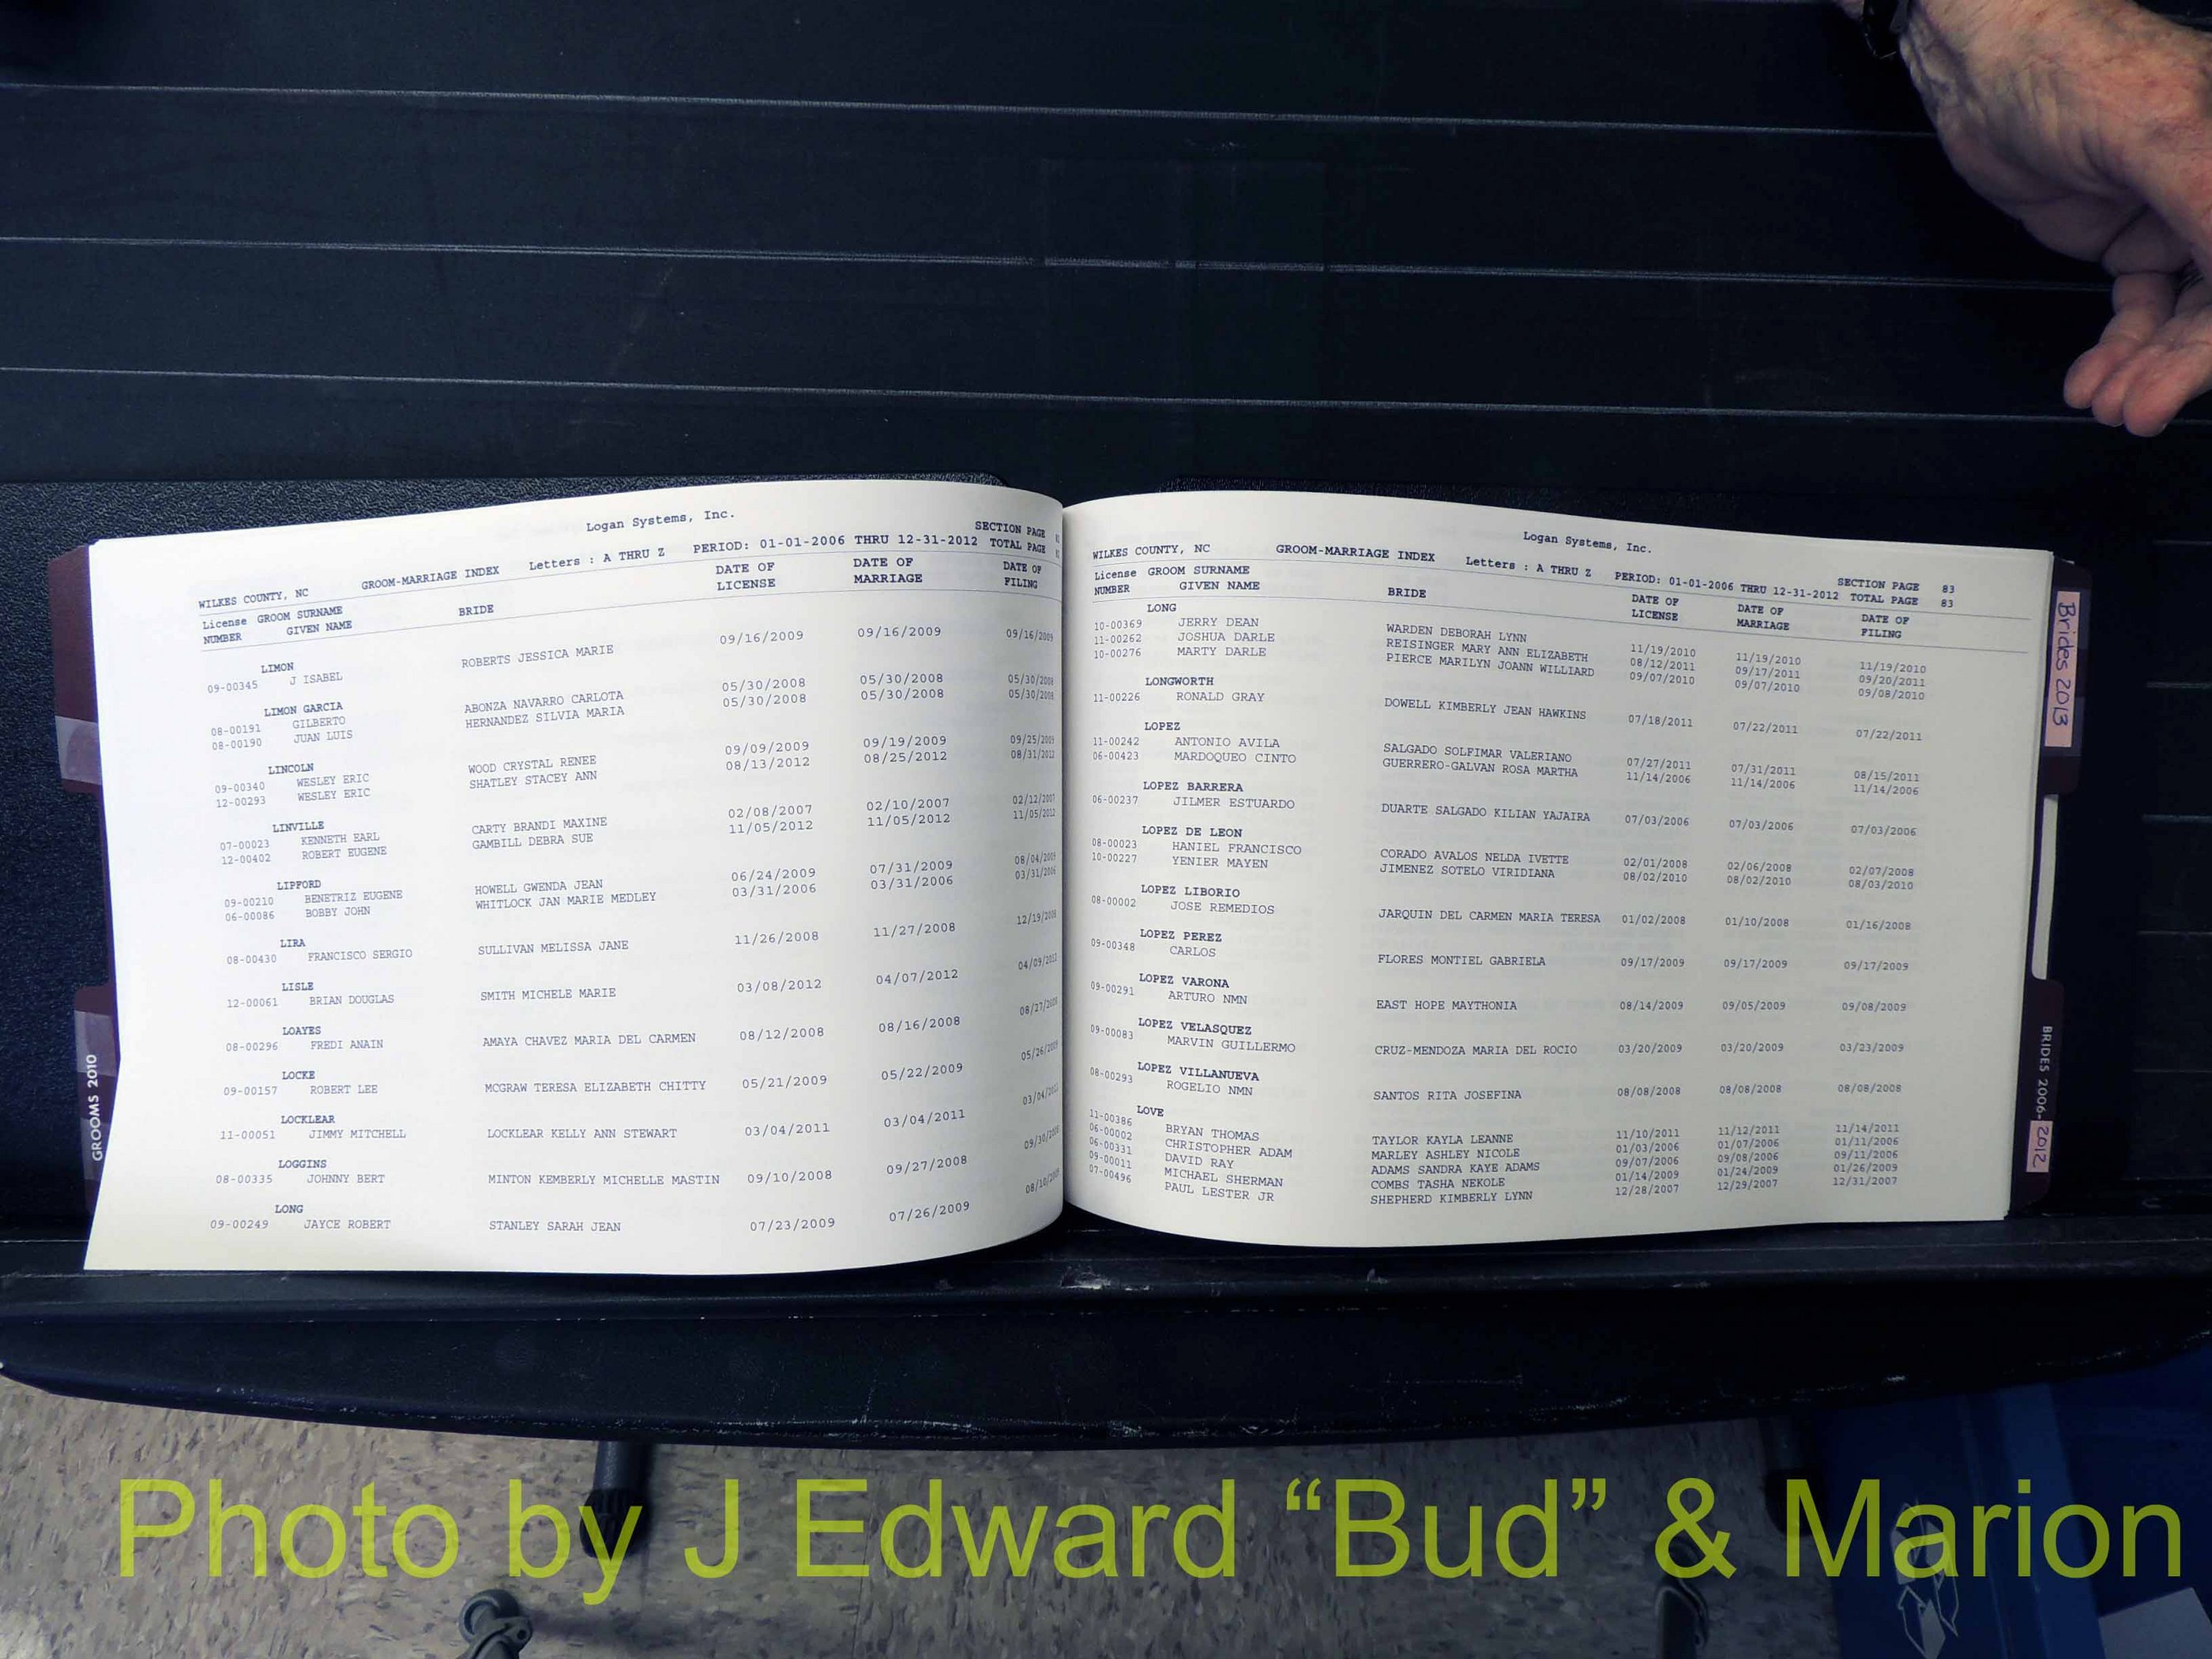 Logan Systems, Inc.
SECTION PAGE
WILKES COUNTY, NC GROOM-MARRIAGE INDEX Letters : A THRU Z PERIOD: 01-01-2006 THRU 12-31-2012 TOTAL PAGE
License GROOM SURNAME DATE OF DATE OF DATE OF
NUMBER GIVEN NAME BRIDE LICENSE MARRIAGE FILING
LIMON
09-00345 J ISABEL ROBERTS JESSICA MARIE 09/16/2009 09/16/2009 09/16/2009
LIMON GARCIA
08-00191 GILBERTO ABONZA NAVARRO CARLOTA 05/30/2008 05/30/2008 05/30/2008
08-00190 JUAN LUIS HERNANDEZ SILVIA MARIA 05/30/2008 05/30/2008 05/30/2008
LINCOLN
09-00340 WESLEY ERIC WOOD CRYSTAL RENEE 09/09/2009 09/19/2009 09/25/2009
12-00293 WESLEY ERIC SHATLEY STACEY ANN 08/13/2012 08/25/2012 08/31/2012
LINVILLE
07-00023 KENNETH EARL CARTY BRANDI MAXINE 02/08/2007 02/10/2007 02/12/2007
12-00402 ROBERT EUGENE GAMBILL DEBRA SUE 11/05/2012 11/05/2012 11/05/2012
LIPFORD
09-00210 BENETRIZ EUGENE HOWELL GWENDA JEAN 06/24/2009 07/31/2009 08/04/2009
06-00086 BOBBY JOHN WHITLOCK JAN MARIE MEDLEY 03/31/2006 03/31/2006 03/31/2006
LIRA
08-00430 FRANCISCO SERGIO SULLIVAN MELISSA JANE 11/26/2008 11/27/2008 12/19/2008
LISLE
12-00061 BRIAN DOUGLAS SMITH MICHELE MARIE 03/08/2012 04/07/2012 04/09/2012
LOAYES
08-00296 FREDI ANAIN AMAYA CHAVEZ MARIA DEL CARMEN 08/12/2008 08/16/2008 08/27/2008
LOCKE
09-00157 ROBERT LEE MCGRAW TERESA ELIZABETH CHITTY 05/21/2009 05/22/2009 05/26/2009
LOCKLEAR
11-00051 JIMMY MITCHELL LOCKLEAR KELLY ANN STEWART 03/04/2011 03/04/2011 03/04/2011
LOGGINS
08-00335 JOHNNY BERT MINTON KEMBERLY MICHELLE MASTIN 09/10/2008 09/27/2008 09/30/2008
LONG
09-00249 JAYCE ROBERT STANLEY SARAH JEAN 07/23/2009 07/26/2009 08/10/2009
GROOMS 2010
Logan Systems, Inc.
SECTION PAGE 83
WILKES COUNTY, NC GROOM-MARRIAGE INDEX Letters : A THRU Z PERIOD: 01-01-2006 THRU 12-31-2012 TOTAL PAGE 83
License GROOM SURNAME DATE OF DATE OF DATE OF
NUMBER GIVEN NAME BRIDE LICENSE MARRIAGE FILING
LONG
10-00369 JERRY DEAN WARDEN DEBORAH LYNN 11/19/2010 11/19/2010 11/19/2010
11-00262 JOSHUA DARLE REISINGER MARY ANN ELIZABETH 08/12/2011 09/17/2011 09/20/2011
10-00276 MARTY DARLE PIERCE MARILYN JOANN WILLIARD 09/07/2010 09/07/2010 09/08/2010
LONGWORTH
11-00226 RONALD GRAY DOWELL KIMBERLY JEAN HAWKINS 07/18/2011 07/22/2011 07/22/2011
LOPEZ
11-00242 ANTONIO AVILA SALGADO SOLFIMAR VALERIANO 07/27/2011 07/31/2011 08/15/2011
06-00423 MARDOQUEO CINTO GUERRERO-GALVAN ROSA MARTHA 11/14/2006 11/14/2006 11/14/2006
LOPEZ BARRERA
06-00237 JILMER ESTUARDO DUARTE SALGADO KILIAN YAJAIRA 07/03/2006 07/03/2006 07/03/2006
LOPEZ DE LEON
08-00023 HANIEL FRANCISCO CORADO AVALOS NELDA IVETTE 02/01/2008 02/06/2008 02/07/2008
10-00227 YENIER MAYEN JIMENEZ SOTELO VIRIDIANA 08/02/2010 08/02/2010 08/03/2010
LOPEZ LIBORIO
08-00002 JOSE REMEDIOS JARQUIN DEL CARMEN MARIA TERESA 01/02/2008 01/10/2008 01/16/2008
LOPEZ PEREZ
09-00348 CARLOS FLORES MONTIEL GABRIELA 09/17/2009 09/17/2009 09/17/2009
LOPEZ VARONA
09-00291 ARTURO NMN EAST HOPE MAYTHONIA 08/14/2009 09/05/2009 09/08/2009
LOPEZ VELASQUEZ
09-00083 MARVIN GUILLERMO CRUZ-MENDOZA MARIA DEL ROCIO 03/20/2009 03/20/2009 03/23/2009
LOPEZ VILLANUEVA
08-00293 ROGELIO NMN SANTOS RITA JOSEFINA 08/08/2008 08/08/2008 08/08/2008
LOVE
11-00386 BRYAN THOMAS TAYLOR KAYLA LEANNE 11/10/2011 11/12/2011 11/14/2011
06-00002 CHRISTOPHER ADAM MARLEY ASHLEY NICOLE 01/03/2006 01/07/2006 01/11/2006
06-00331 DAVID RAY ADAMS SANDRA KAYE ADAMS 09/07/2006 09/08/2006 09/11/2006
09-00011 MICHAEL SHERMAN COMBS TASHA NEKOLE 01/14/2009 01/24/2009 01/26/2009
07-00496 PAUL LESTER JR SHEPHERD KIMBERLY LYNN 12/28/2007 12/29/2007 12/31/2007
Brides 2013
BRIDES 2006-2012
Photo by J Edward “Bud” & Marion